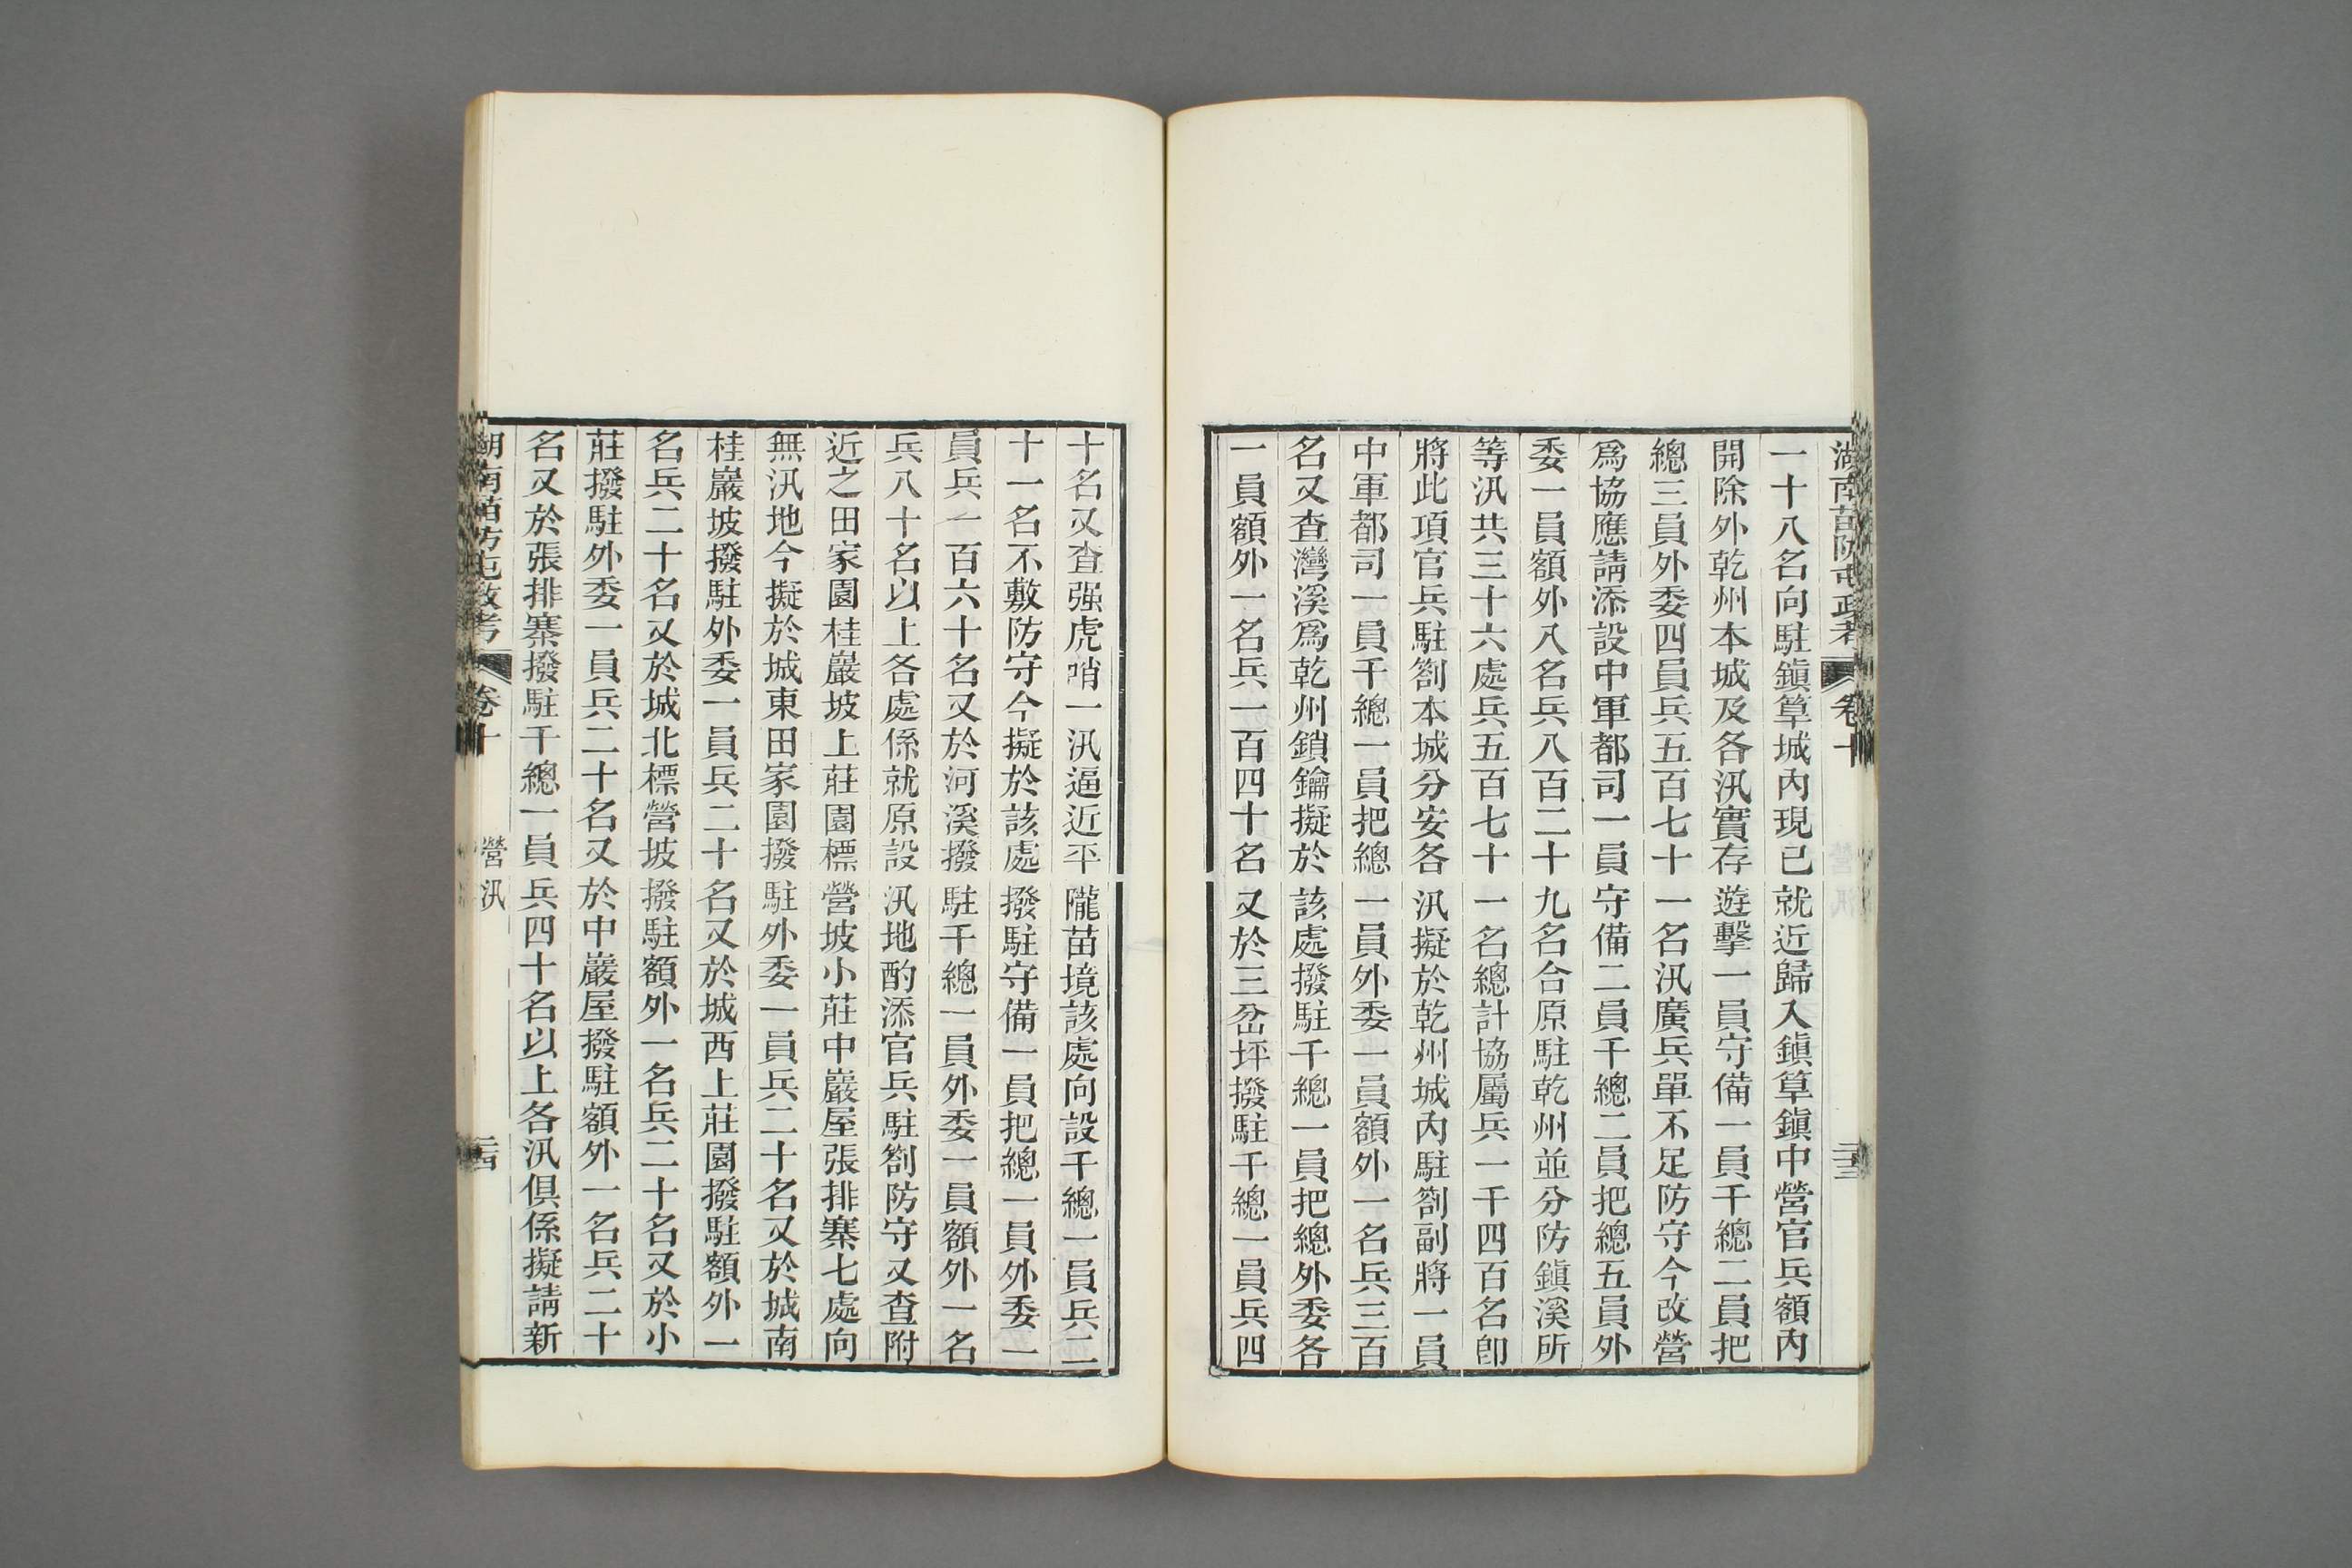 湖南苗防屯政考 卷十 二十三
一十八名向駐鎭筸城內現已就近歸入鎭筸鎭中營官兵額內
開除外乾州本城及各汛實存遊擊一員守備一員千總二員把
總三員外委四員兵五百七十一名汛廣兵單不足防守今改營
爲協應請添設中軍都司一員守備二員千總二員把總五員外
委一員額外八名兵八百二十九名合原駐乾州並分防鎭溪所
等汛共三十六處兵五百七十一名總計協屬兵一千四百名卽
將此項官兵駐劄本城分安各汛擬於乾州城內駐劄副將一員
中軍都司一員千總一員把總一員外委一員額外一名兵三百
名又查灣溪爲乾州鎖鑰擬於該處撥駐千總一員把總外委各
一員額外一名兵一百四十名又於三岔坪撥駐千總一員兵四
十名又查强虎哨一汛逼近平隴苗境該處向設千總一員兵二
十一名不敷防守今擬於該處撥駐守備一員把總一員外委一
員兵一百六十名又於河溪撥駐千總一員外委一員額外一名
兵八十名以上各處係就原設汛地酌添官兵駐劄防守又查附
近之田家園桂巖坡上莊園標營坡小莊中巖屋張排寨七處向
無汛地今擬於城東田家園撥駐外委一員兵二十名又於城南
桂巖坡撥駐外委一員兵二十名又於城西上莊園撥駐額外一
名兵二十名又於城北標營坡撥駐額外一名兵二十名又於小
莊撥駐外委一員兵二十名又於中巖屋撥駐額外一名兵二十
名又於張排寨撥駐千總一員兵四十名以上各汛俱係擬請新
湖南苗防屯政考 卷十 營汛 二十四